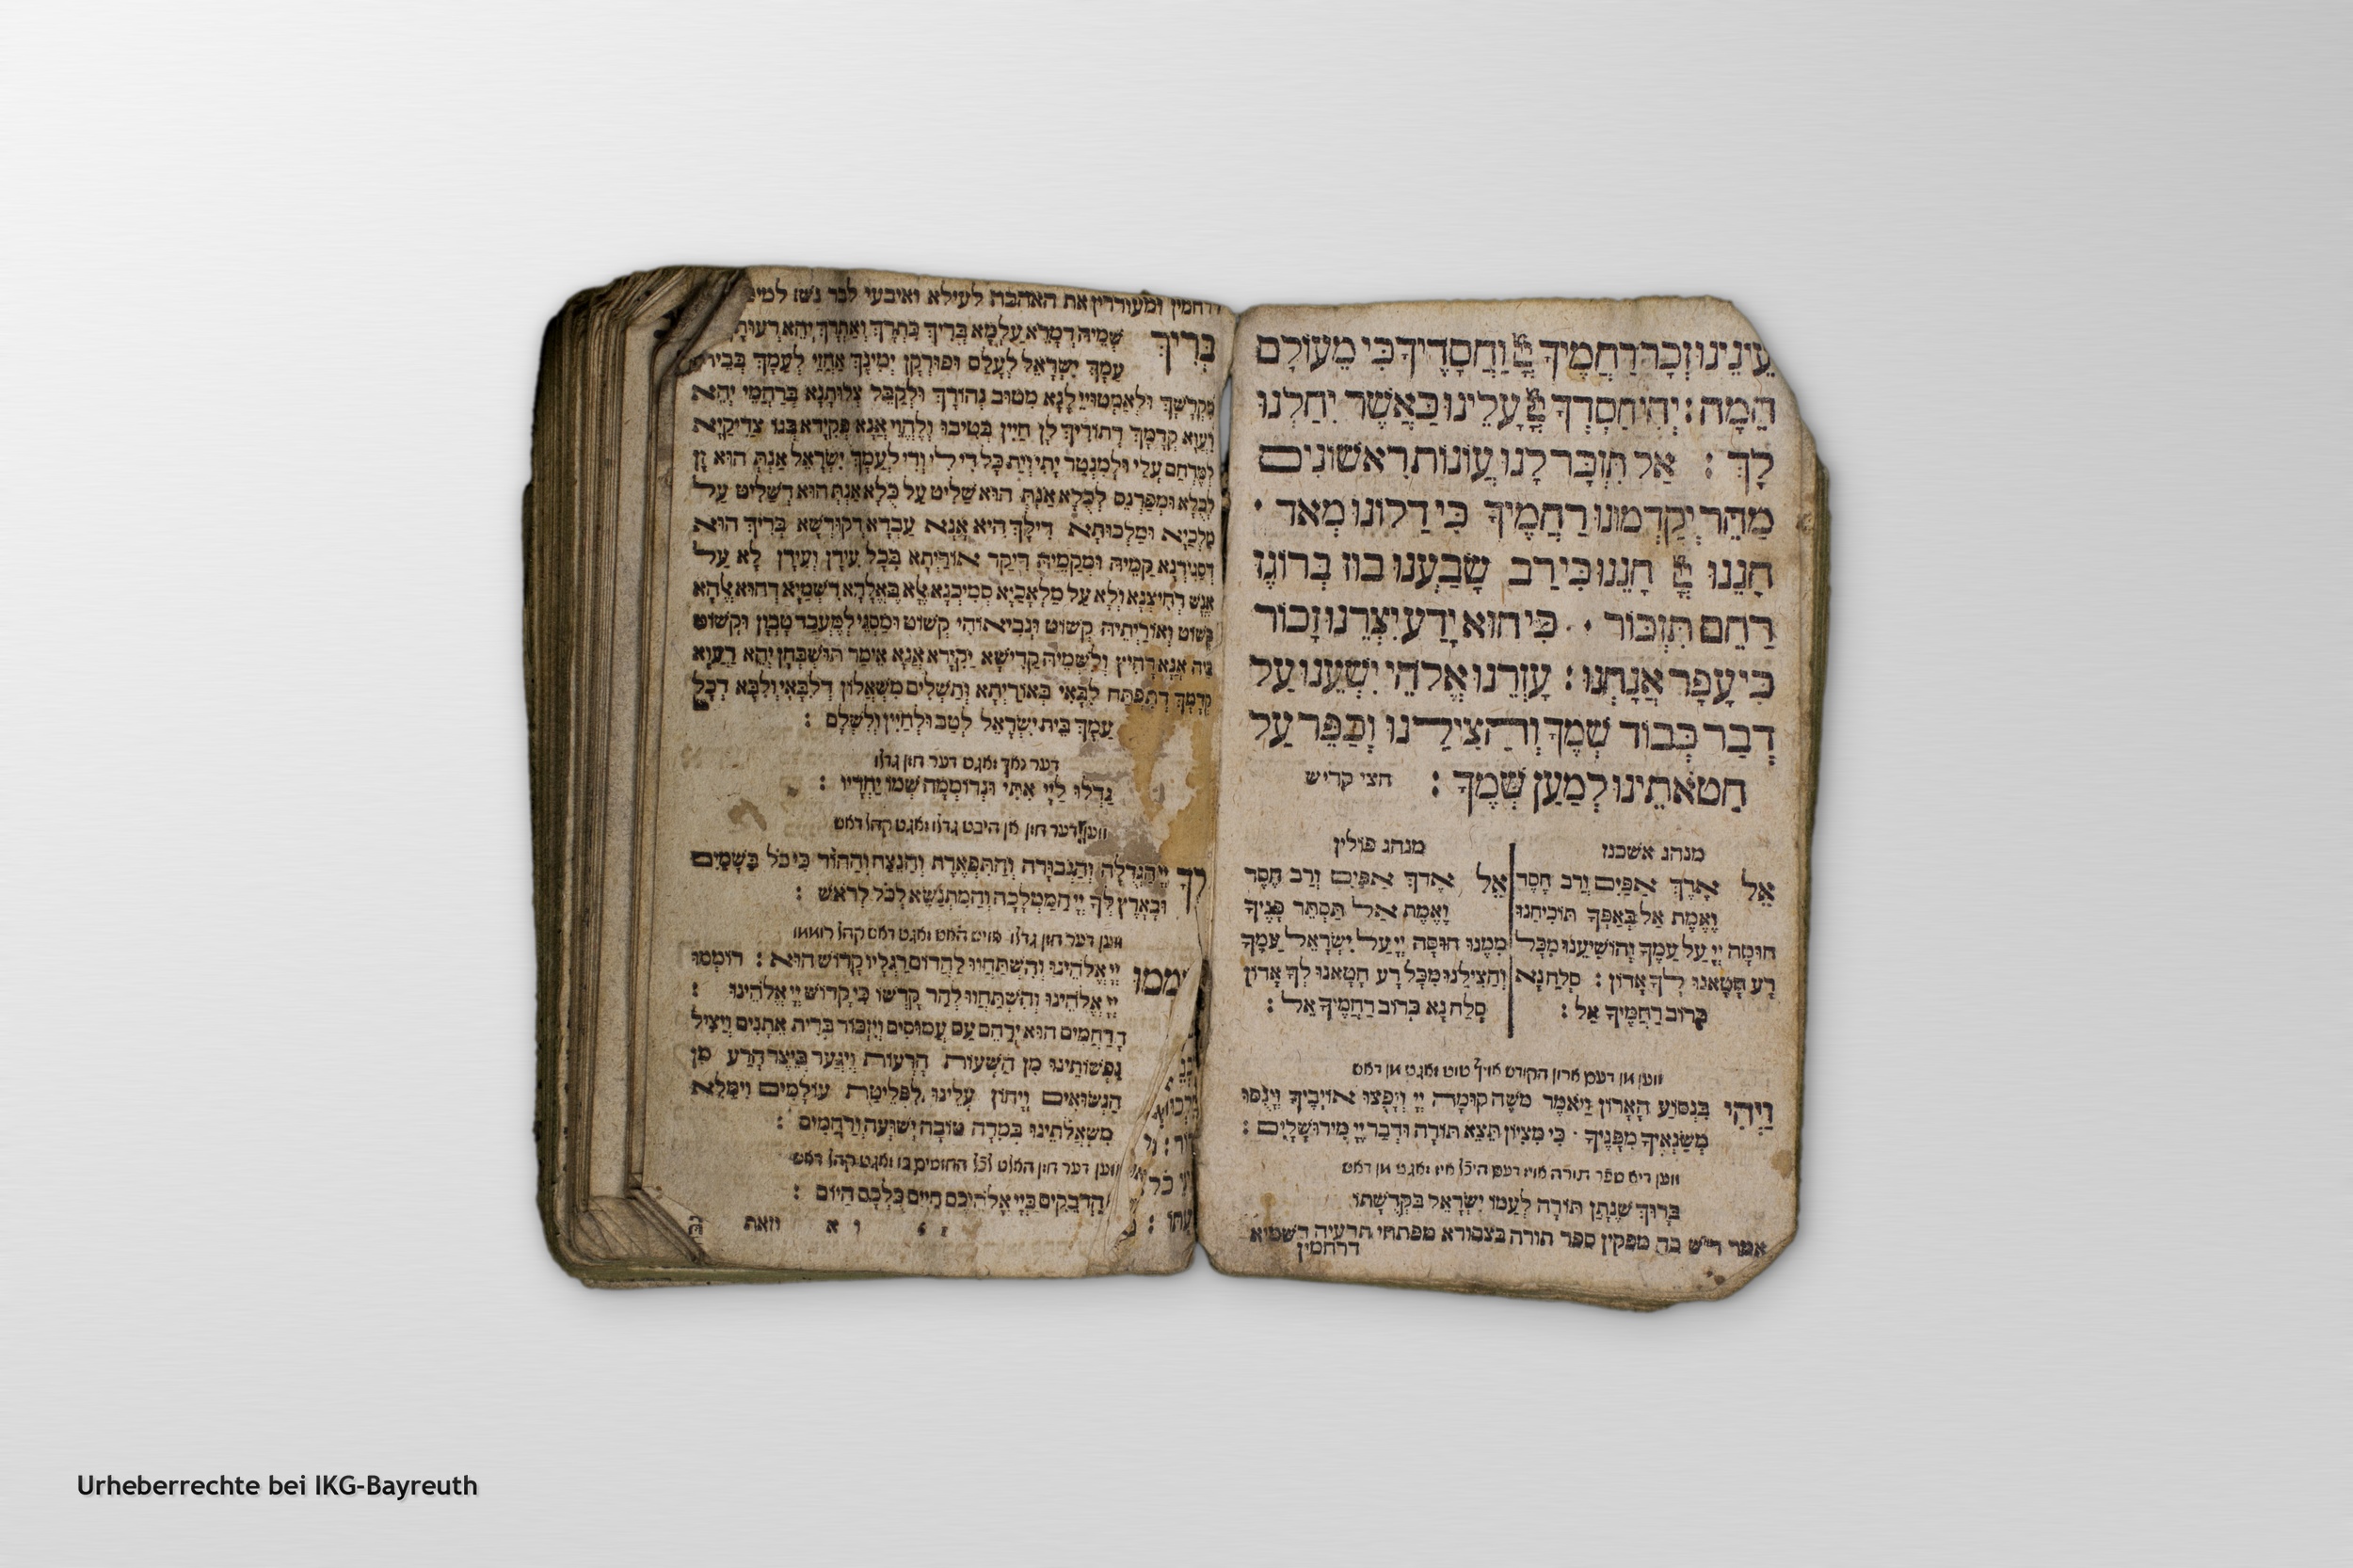 עֵינֵינוּ זְכָר רַחֲמֶיךָ יְיָ וַחֲסָדֶיךָ כִּי מֵעוֹלָם
הֵמָה : יְהִי חַסְדְךָ יְיָ עָלֵינוּ כַּאֲשֶׁר יִחַלְנוּ
לָךְ : אַל תִּזְכָּר לָנוּ עֲוֹנוֹת רִאשׁוֹנִים
מַהֵר יְקַדְמוּנוּ רַחֲמֶיךָ כִּי דַלּוֹנוּ מְאד ·
חָנֵנוּ יְיָ חָנֵנוּ כִּי רַב שָׂבַעְנוּ בוּז בְּרוֹגֶז
רַחֵם תִּזְכּוֹר · כִּי הוּא יָדַע יִצְרֵנוּ זָכוֹר
כִּי עָפָר אֲנָחְנוּ : עָזְרֵנוּ אֱלֹהֵי יִשְׁעֵנוּ עַל
דְבַר כְּבוֹד שְׁמֶךָ וְהַצִילֵנוּ וְכַפֵּר עַל
חַטֹאתֵינוּ לְמַעַן שְׁמֶךָ : חצי קדיש
מנהג אשכנז
אֵל אֶרֶךְ אַפַּיִם וְרַב חֶסֶד
וֶאֱמֶת אַל בְּאַפְּךָ תּוֹכִיחֵנוּ
חוּסָה יְיָ עַל עַמֶךָ וְהוֹשִׁיעֵנוּ מִכָּל
רָע חָטָאנוּ לְךָ אָדוֹן : סְלַח נָא
כְּרוֹב רַחֲמֶיךָ אֵל :
מנהג פולין
אֵל אֶרֶךְ אַפַּיִם וְרַב חֶסֶד
וֶאֱמֶת אַל תַּסְתֵּר פָּנֶיךָ
מִמֶנוּ חוּסָה יְיָ עַל יִשְׂרָאֵל עַמֶךָ
וְהַצִילֵנוּ מִכָּל רָע חָטָאנוּ לְךָ אָדוֹן
סְלַח נָא כְּרוֹב רַחֲמֶיךָ אֵל :
ווען מן דעם ארון הקודש אויף טוט זאגט מן דאס
וַיְהִי בִּנְסוֹעַ הָאָרוֹן וַיֹאמֶר מֹשֶׁה קוּמָה יְיָ וְיָפֻצוּ אוֹיְבֶיךָ וְיָנֻסוּ
מְשַׂנְאֶיךָ מִפָּנֶיךָ · כִּי מִצִיוֹן תֵּצֵא תוֹרָה וּדְבַר יְיָ מִירוּשָׁלָיִם :
ווען דיא ספר תורה אויז דעם היכל איז זאגט מן דאס
בָּרוּךְ שֶׁנָתַן תּוֹרָה לְעַמוֹ יִשְׂרָאֵל בִּקְדֻשָׁתוֹ
אמר ר"ש כד מפקין ספר תורה בצבורא מפתחי תרעיה דשמיא
דרחמין
דרחמין ומעוררין את האהבה לעילא ואיבעי לבר נש למימ
בְּרִיךְ שְׁמֵיהּ דְמָרֵא עָלְמָא בְּרִיךְ כִּתְרָךְ וְאַתְרָךְ יְהֵא רְעוּתָ
עַמָךְ יִשְׂרָאֵל לְעָלַם וּפוּרְקַן יְמִינָךְ אַחֲזֵי לְעַמָךְ בְּבֵית
מִקְדָשָׁךְ וּלְאַמְטוּיֵי לָנָא מִטוּב נְהוֹרָךְ וּלְקַבֵּל צְלוֹתָנָא בְּרַחֲמֵי יְהֵא
רַעֲוָא קֳדָמָךְ דְתוֹרִיךְ לָן חַיִין בְּטִיבוּ וְלֶהֱוֵי אֲנָא פְּקִידָא בְּגוֹ צַדִיקַיָא
לְמִרְחַם עֲלַי וּלְמִנְטַר יָתִי וְיַת כָּל דִי לִי וְדִי לְעַמָךְ יִשְׂרָאֵל אַנְתְּ הוּא זָן
לְכֹלָא וּמְפַרְנֵס לְכֹלָא אַנְתְּ הוּא שַׁלִיט עַל כֹּלָא אַנְתְּ הוּא דְשַׁלִיט עַל
מַלְכַיָא וּמַלְכוּתָא דִילָךְ הִיא אֲנָא עַבְדָא דְקוּדְשָׁא בְּרִיךְ הוּא
דְסָגִידְנָא קַמֵיהּ וּמִקַמֵיהּ דִיקַר אוֹרַיְתָא בְּכָל עִידָן וְעִידָן לָא עַל
אֱנָשׁ רָחִיצְנָא וְלָא עַל מַלְאֲכַיָא סְמִיכְנָא אֶלָא בֶּאֱלָהָא דִשְׁמַיָא דְהוּא אֱלָהָא
קְשׁוֹט וְאוֹרַיְתֵיהּ קְשׁוֹט וּנְבִיאוֹהִי קְשׁוֹט וּמַסְגֵי לְמֶעְבַּד טָבְוָן וּקְשׁוֹט
בֵּיהּ אֲנָא רָחִיץ וְלִשְׁמֵיהּ קַדִישָׁא יַקִירָא אֲנָא אֵימַר תּוּשְׁבְּחָן יְהֵא רַעֲוָא
קֳדָמָךְ דְתִפְתַּח לִבָּאִי בְּאוֹרַיְתָא וְתַשְׁלִים מִשְׁאֲלוֹן דְלִבָּאִי וְלִבָּא דְכָל
עַמָךְ בֵּית יִשְׂרָאֵל לְטַב וּלְחַיִין וְלִשְׁלָם :
דער נאך זאגט דער חזן גדלו
גַדְלוּ לַיְיָ אִתִּי וּנְרוֹמְמָה שְׁמוֹ יַחְדָיו :
ווען דער חזן אן היבט גדלו זאגט קהל דאס
לְךָ יְיָ הַגְדֻלָה וְהַגְבוּרָה וְהַתִּפְאֶרֶת וְהַנֵצַח וְהַהוֹד כִּי כֹל בַּשָׁמַיִם
וּבָאָרֶץ לְךָ יְיָ הַמַמְלָכָה וְהַמִתְנַשֵׂא לְכֹל לְרֹאשׁ :
ווען דער חזן גדלו אויס האט זאגט דאס קהל רוממו
יְיָ אֱלֹהֵינוּ וְהִשְׁתַּחֲווּ לַהֲדוֹם רַגְלָיו קָדוֹשׁ הוּא : רוֹמְמוּ
יְיָ אֱלֹהֵינוּ וְהִשְׁתַּחֲווּ לְהַר קָדְשׁוֹ כִּי קָדוֹשׁ יְיָ אֱלֹהֵינוּ :
הָרַחֲמִים הוּא יְרַחֵם עַם עֲמוּסִים וְיִזְכּוֹר בְּרִית אֵתָנִים וְיַצִיל
נַפְשׁוֹתֵינוּ מִן הַשָׁעוֹת הָרָעוֹת וְיִגְעַר בְּיֵצֶר הָרַע מִן
הַנְשׂוּאִים וְיָחוֹן עָלֵינוּ לִפְלֵיטַת עוֹלָמִים וִימַלֵא
מִשְׁאֲלֹתֵינוּ בְּמִדָה טוֹבָה יְשׁוּעָה וְרַחֲמִים :
ווען דער חזן האט וכל החוסים בו זאגט קהל דאס
הַדְבֵקִים בַּיְיָ אֱלֹהֵיכֶם חַיִים כֻּלְכֶם הַיוֹם :
וזאת
Urheberrechte bei IKG-Bayreuth